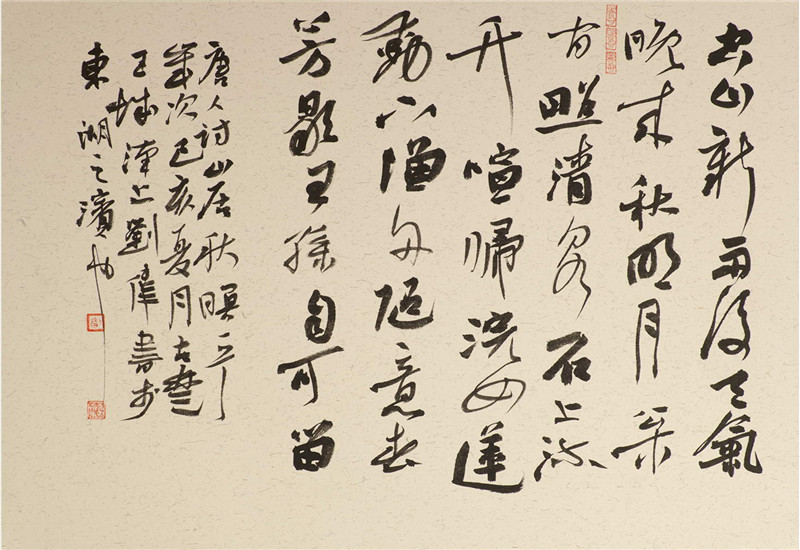 空山新雨後天氣
晚來秋明月松
間照清泉石上流
竹喧歸浣女蓮
動下漁舟隨意春
芳歇王孫自可留
唐人詩山居秋暝
歲次己亥夏月古楚
王城漢上劉偉書於
東湖之濱